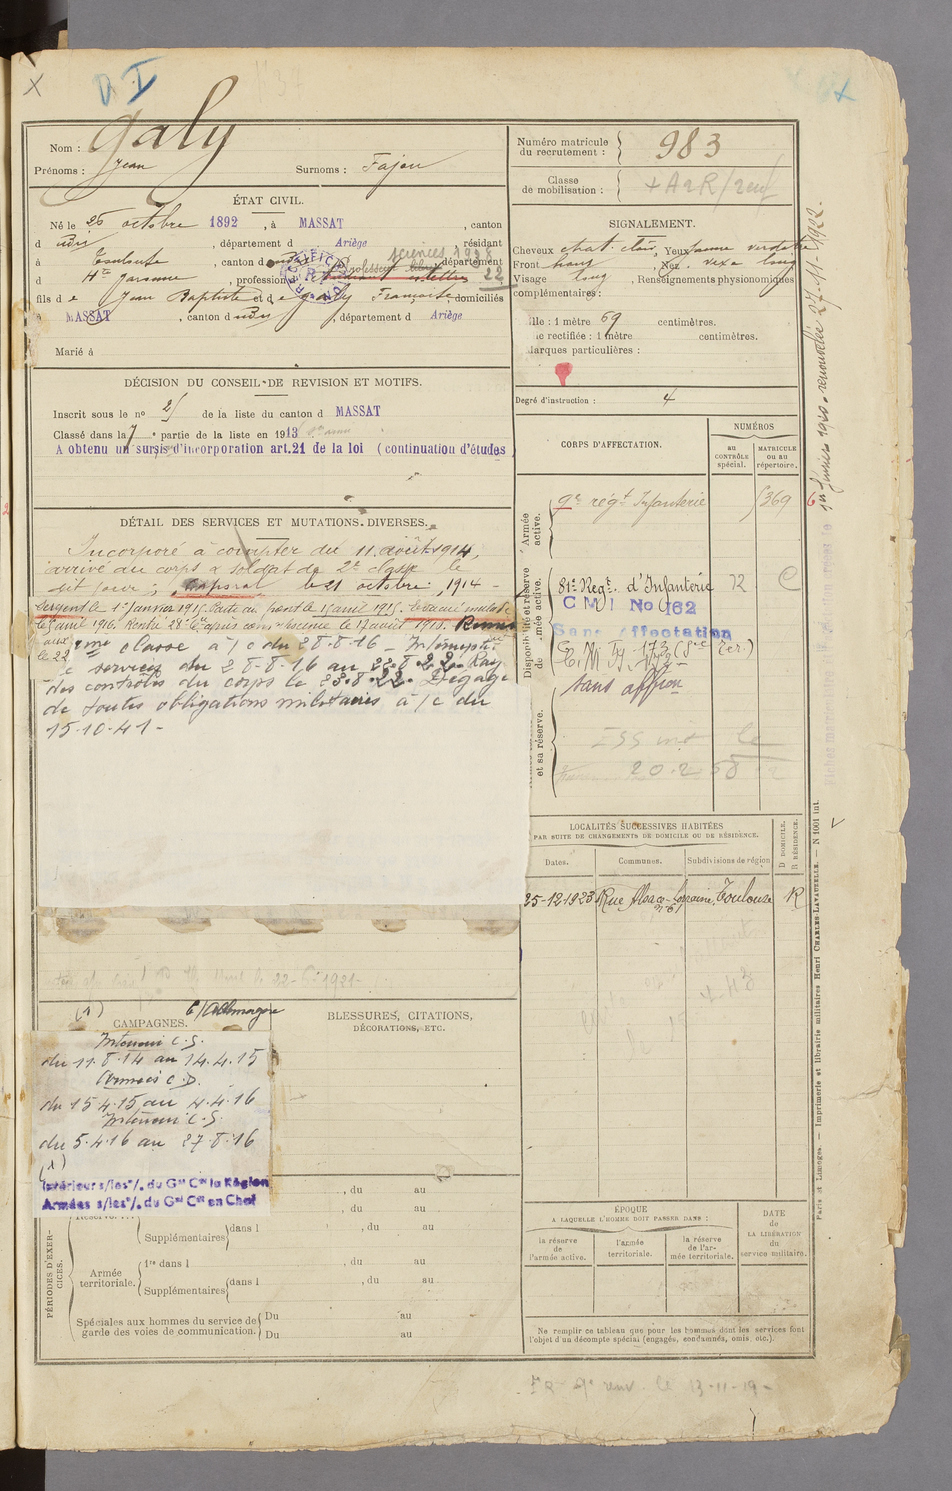 Nom : Galy
Prénoms : Jean Surnoms : Fajou
ÉTAT CIVIL.
Né le 25 octobre 1892, à MASSAT, canton
d udis, département d Ariège, résidant
à Toulouse, canton d, département
sciences 1928
d Hte Garonne, profession d Professeur libre étudiant ès lettres 22
fils de Jean Baptiste et de Galy Françoise domiciliés
à MASSAT, canton dudis, département d Ariège
Marié à
DÉCISION DU CONSEIL DE REVISION ET MOTIFS.
Inscrit sous le no 25 de la liste du canton d MASSAT
Classé dans la 7e partie de la liste en 1913
A obtenu un sursis d'incorporation art.21 de la loi (continuation d'études
DÉTAIL DES SERVICES ET MUTATIONS DIVERSES.
Incorporé à compter du 11 août 1914,
arrivé au corps & soldat de 2e classe le
dit jour; Caporal le 21 octobre 1914 -
Sergent le 1er janvier 1915. Parti au front le 15 avril 1915.
le 5 avril 1916. Rentré
aux
le 22
classe à /c du 28-8-16 - Interruption
de services du 28-8-16 au 22.8.22. Rayé
des contrôles du corps le 23.8.22. Dégagé
de toutes obligations militaires à /c du
15-10-41 -
le 22-6-1921-
(1) C/Allemagne
CAMPAGNES.
Intérieur C.S.
du 11.8.14 au 14.4.15
Armées C.D.
du 15.4.15 au 4.4.16
Intérieur C.S.
du 5.4.16 au 27.8.16
(1)
Intérieur s/les o/. du Gal Ct la Région
Armées s/les o/. du Gal Ct en Chef
BLESSURES, CITATIONS,
DÉCORATIONS, ETC.
PÉRIODES D'EXERCICES.
, du au
, du au
Supplémentaires dans l , du au
Armée territoriale. 1re dans l , du au
Supplémentaires dans l , du au
Spéciales aux hommes du service de garde des voies de communication. Du au
Du au
Numéro matricule du recrutement : 983
Classe de mobilisation :
SIGNALEMENT.
Cheveux chat. clair, Yeux jaune verdâtre
Front haut, Nez vexe long
Visage long, Renseignements physionomiques
complémentaires :
Taille : 1 mètre 69 centimètres.
Taille rectifiée : 1 mètre centimètres.
Marques particulières :
Degré d'instruction : 4
CORPS D'AFFECTATION.
NUMÉROS
au CONTRÔLE spécial.
MATRICULE ou au répertoire.
Armée active.
9e régt Infanterie 1369
Disponibilité et réserve de l'armée active.
81e Regt. d'Infanterie 72
C M I No 162
Sans Affectation
C.M.I. 173
sans affon
et sa réserve.
20.2
LOCALITÉS SUCCESSIVES HABITÉES
PAR SUITE DE CHANGEMENTS DE DOMICILE OU DE RÉSIDENCE.
Dates. Communes. Subdivisions de région D DOMICILE. R RÉSIDENCE.
25-12-1923 Rue Alsace-Lorraine, Toulouse R
no 61
ÉPOQUE
A LAQUELLE L'HOMME DOIT PASSER DANS :
la réserve de l'armée active.
l'armée territoriale.
la réserve de l'armée territoriale.
DATE de LA LIBÉRATION du service militaire.
Ne remplir ce tableau que pour les hommes dont les services font
l'objet d'un décompte spécial (engagés, condamnés, omis, etc.).
le 13-11-19-
1er février 1920. renouvelée 27-11-1922.
Paris et Limoges. — Imprimerie et librairie militaires Henri CHARLES-LAVAUZELLE. — N 1001 int.